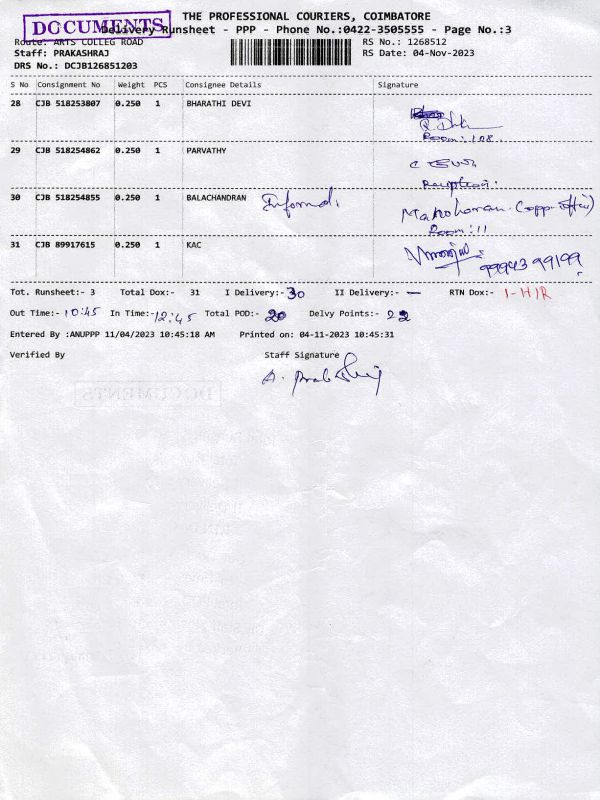 THE PROFESSIONAL COURIERS, COIMBATORE
DOCUMENTS
Delivery Runsheet - PPP - Phone No.:0422-3505555 - Page No.:3
Route: ARTS COLLEG ROAD RS No.: 1268512
Staff: PRAKASHRAJ RS Date: 04-Nov-2023
DRS No.: DCJB126851203
S No Consignment No Weight PCS Consignee Details Signature
28 CJB 518253807 0.250 1 BHARATHI DEVI
Room: 108.
29 CJB 518254862 0.250 1 PARVATHY
Reception.
30 CJB 518254855 0.250 1 BALACHANDRAN Informed.
Manoharan. (opp. office)
Room: 11
31 CJB 89917615 0.250 1 KAC
99943 99199
Tot. Runsheet:- 3 Total Dox:- 31 I Delivery:- 30 II Delivery:- — RTN Dox:- 1-HIR
Out Time:- 10:45 In Time:- 12:45 Total POD:- 20 Delvy Points:- 22
Entered By :ANUPPP 11/04/2023 10:45:18 AM Printed on: 04-11-2023 10:45:31
Verified By Staff Signature